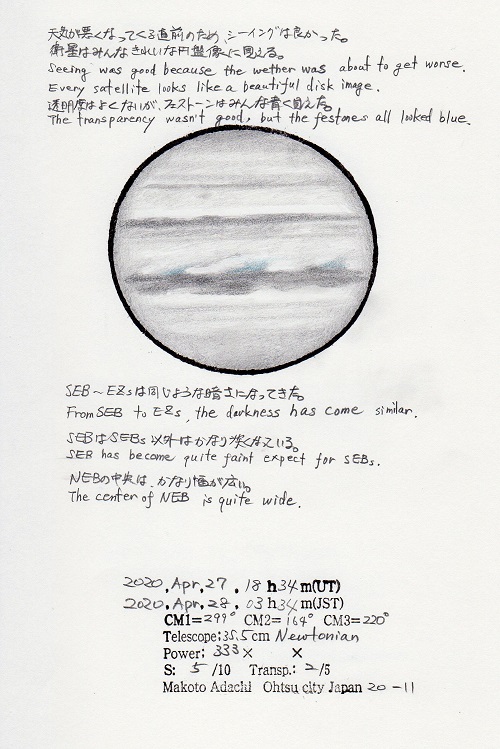 天気が悪くなってくる直前のため、シーイングは良かった。
衛星はみんなきれいな円盤像に見える。
Seeing was good because the wether was about to get worse.
Every satellite looks like a beautiful disk image.
透明度はよくないが、フェストーンはみんな青く見えた。
The transparency wasn't good, but the festones all looked blue.
SEB〜EZsは同じような暗さになってきた。
From SEB to EZs, the darkness has come similar.
SEBはSEBs以外はかなり淡くなっている。
SEB has become quite faint expect for SEBs.
NEBの中央は、かなり幅が広い。
The center of NEB is quite wide.
2020, Apr, 27, 18 h 34 m(UT)
2020, Apr, 28, 03 h 34 m(JST)
CM1=299° CM2=164° CM3=220°
Telescope: 35.5cm Newtonian
Power: 333× ×
S: 5 /10 Transp.: 2/5
Makoto Adachi Ohtsu city Japan 20-11